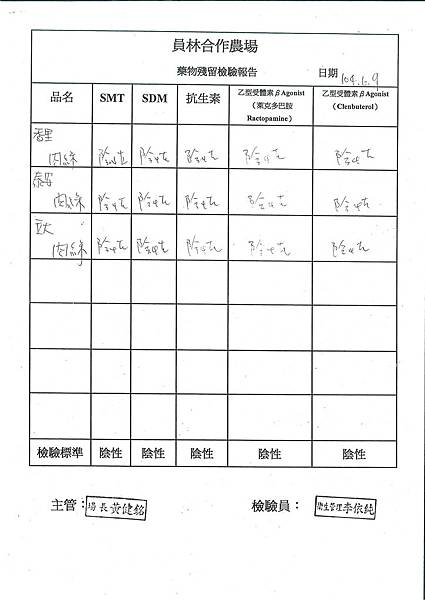 員林合作農場
藥物殘留檢驗報告
日期 104.6.9
品名 SMT SDM 抗生素 乙型受體素βAgonist（萊克多巴胺 Ractopamine） 乙型受體素βAgonist（Clenbuterol）
香里
肉絲 陰性 陰性 陰性 陰性 陰性
泰安
肉絲 陰性 陰性 陰性 陰性 陰性
立大
肉絲 陰性 陰性 陰性 陰性 陰性
檢驗標準 陰性 陰性 陰性 陰性 陰性
主管： 場長黃健銘 檢驗員： 衛生管理李依純